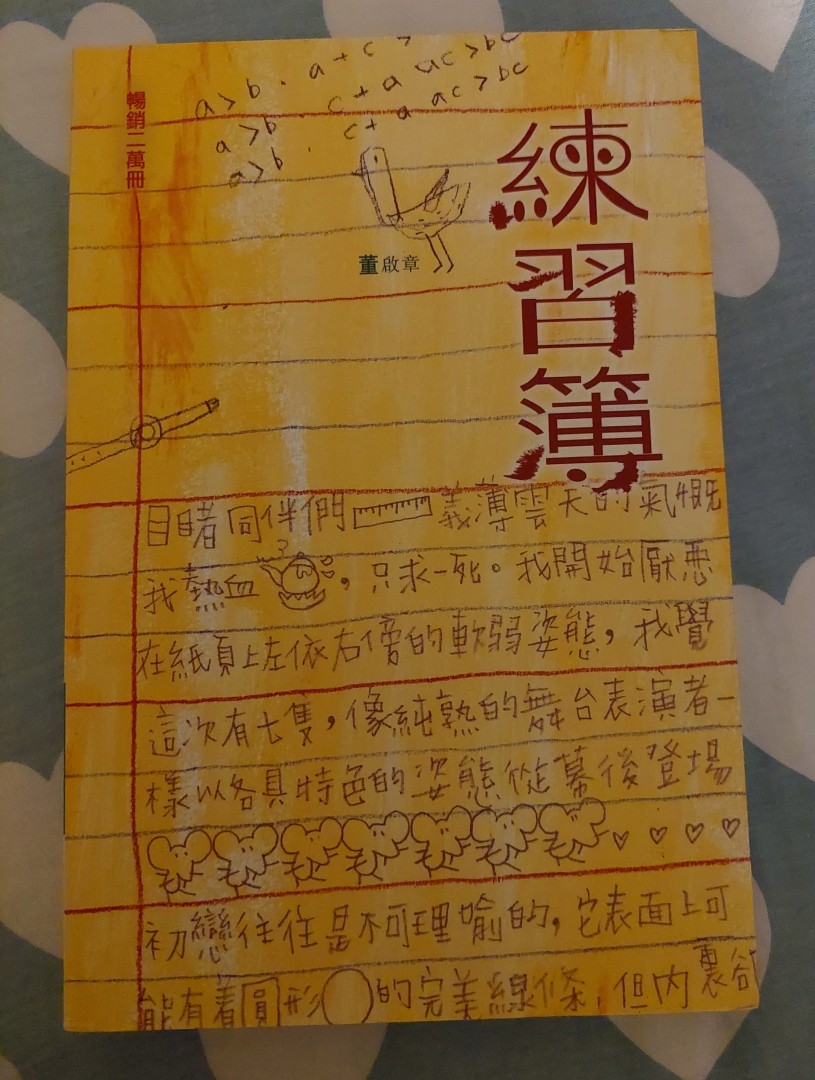 暢銷二萬冊
a>b . a+c>
a>b . c+a ac>bc
a>b . c+a ac>bc
練習簿
董啟章
目睹同伴們義薄雲天的氣慨
我熱血，只求一死。我開始厭惡
在紙頁上左依右傍的軟弱姿態，我覺
這次有七隻，像純熟的舞台表演者一
樣以各具特色的姿態從幕後登場
初戀往往是不可理喻的，它表面上可
能有着圓形的完美線條，但內裏卻